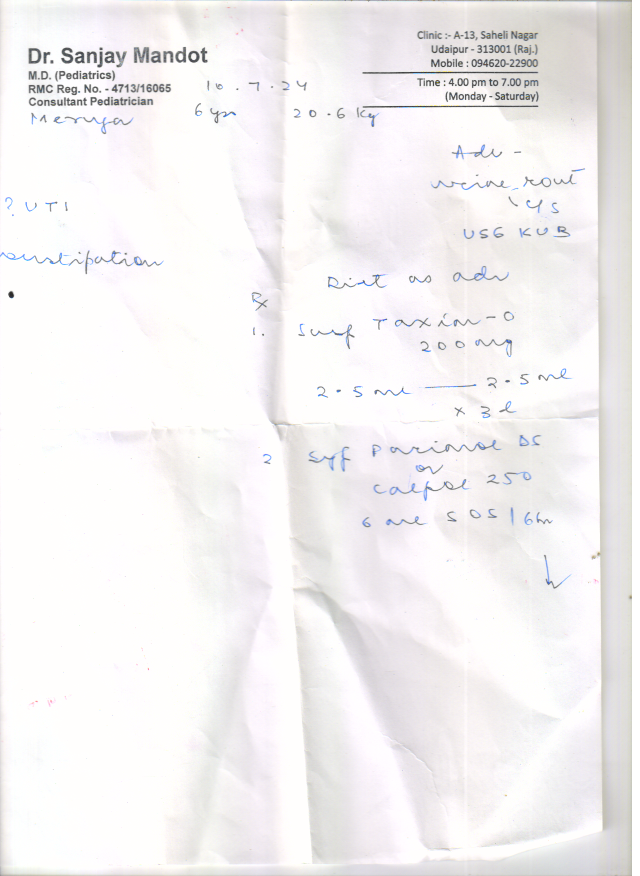 Dr. Sanjay Mandot
M.D. (Pediatrics)
RMC Reg. No. - 4713/16065
Consultant Pediatrician
Clinic :- A-13, Saheli Nagar
Udaipur - 313001 (Raj.)
Mobile : 094620-22900
Time : 4.00 pm to 7.00 pm
(Monday - Saturday)
10.7.24
6 yr 20.6 Kg
Adv -
urine rout
c/s
USG KUB
? UTI
onstipation
Diet as adv
Rx
1. Taxim-O
200 mg
2.5 ml — 2.5 ml
x 3
2 syp DS
or
Calpol 250
6 ml SOS / 6 hr